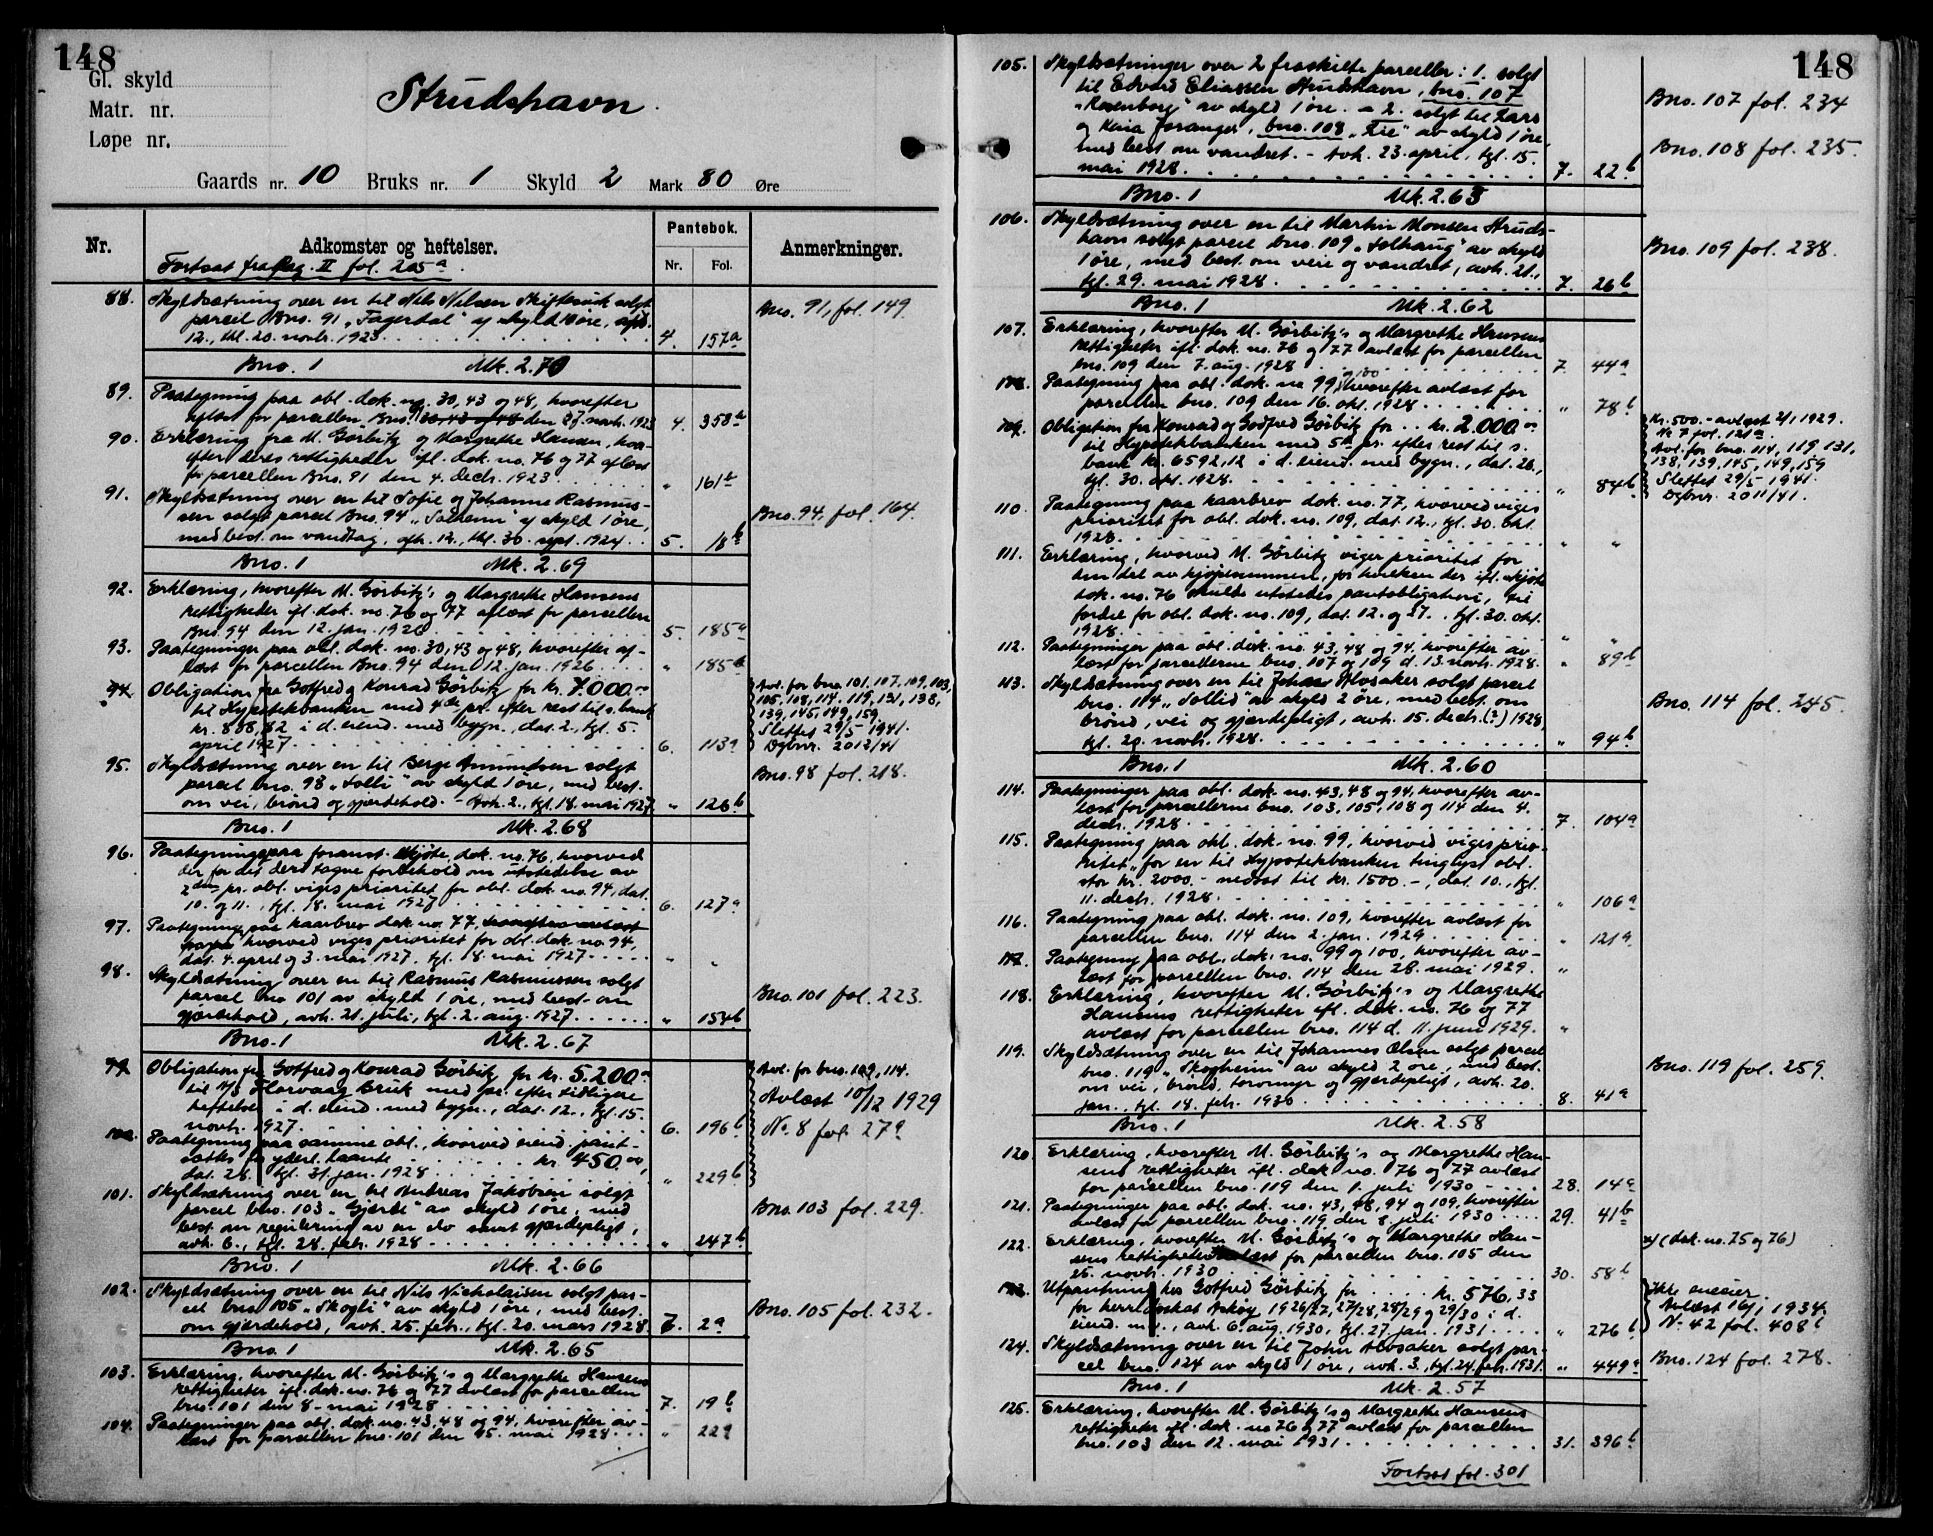 148
Gl. skyld
Matr. nr.
Løpe nr.
Strudshavn.
Gaards nr. 10 Bruks nr. 1 Skyld 2 Mark 80 Øre
Nr. Adkomster og heftelser. Pantebok. Nr. Fol. Anmerkninger.
Fortsat fra Reg. II fol. 205a.
88. Skyldsætning over en til Nils Nilsen Skiftesvik solgt
parcel Bno. 91 "Fagerdal" af skyld 10 øre,
12., thl. 20. novbr. 1923. 4. 157a Bno. 91, fol. 149.
Bno. 1 Mk. 2.70
89. Paategning paa obl. dok. no. 30, 43 og 48, hvorefter
afløst for parcellen Bno. 91 den 27. novbr. 1923 4. 358b
90. Erklæring fra M. Gørbitz og Margrethe Hansen, hvor-
efter deres rettigheder ifl. dok. no. 76 og 77 afløst
for parcellen Bno. 91 den 4. decbr. 1923 " 161b
91. Skyldsætning over en til Sofie og Johanne Rasmus-
sen solgt parcel Bno. 94 "Solheim" af skyld 1 øre,
med best. om vandtag, afh. 12., thl. 30. sept. 1924 5. 18b Bno. 94, fol. 164.
Bno. 1 Mk. 2.69
92. Erklæring, hvorefter M. Gørbitz's og Margrethe Hansens
rettigheder ifl. dok. no. 76 og 77 afløst for parcellen
Bno. 94 den 12. jan. 1926 5. 185a
93. Paategninger paa obl. dok. no. 30, 43 og 48, hvorefter af-
løst for parcellen Bno. 94 den 12. jan. 1926 " 185b
94. Obligation fra Gotfred og Konrad Gørbitz for kr. 7.000.00
til Hypotekbanken med 4de pr. efter rest til s. bank
kr. 888,82 i d. eiend. med bygn., dat. 2., tgl. 5.
april 1927 6. 113a
Avl. for bno 101, 107, 109, 103,
105, 108, 114, 119, 131, 138,
139, 145, 149, 159.
Slettet 29/5 1941.
Dgbnr. 2012/41
95. Skyldsætning over en til Berge Amundsen solgt
parcel bno. 98 "Solli" av skyld 1 øre, med best.
om vei, brønd og gjærdehold. - Avh. 2., tgl. 18. mai 1927 " 126b Bno. 98 fol. 218.
Bno. 1 Mk. 2.68
96. Paategning paa foranst. skjøte, dok. no. 76, hvorved
der for det deri tagne forbehold om utstedelse av
2den pr. obl. viges prioritet for obl. dok. no. 94, dat.
10. og 11., tgl. 18. mai 1927 6. 127a
97. Paategning paa kaarbrev dok. no. 77,
hvorved viges prioritet for obl. dok. no. 94,
dat. 4. april og 3. mai 1927, tgl. 18. mai 1927 " "
98. Skyldsætning over en til Rasmus Rasmussen solgt
parcel bno 101 av skyld 1 øre, med best. om
gjærdehold, avh. 21. juli, tgl. 2. aug. 1927 " 154b Bno. 101 fol. 223.
Bno. 1 Mk. 2.67
99. Obligation fra Gotfred og Konrad Gørbitz for kr. 5.200.00
til A/S Florvaag Bruk med pr. efter tidligere
heftelser i d. eiend. med bygn., dat. 12., tgl. 15.
novbr. 1927 6. 196b
Avl. for bno. 109, 114.
Avløst 10/12 1929
No. 8 fol. 27a
100. Paategning paa samme obl., hvorved eiend. pant-
sættes for yderl. laante kr. 450.00,
dat. 28., tgl. 31. jan. 1928 " 229b
101. Skyldsætning over en til Andreas Jakobsen solgt
parcel bno. 103 "Gjærde" av skyld 1 øre, med
best. om regulering av en elv samt gjærdepligt,
avh. 6., tgl. 28. febr. 1928 " 247b Bno. 103 fol. 229.
Bno. 1 Mk. 2.66
102. Skyldsætning over en til Nils Nicholaisen solgt par-
cel bno. 105 "Skogli" av skyld 1 øre, med best.
om gjærdehold, avh. 25. febr., tgl. 20. mars 1928 7. 2a Bno. 105 fol. 232.
Bno. 1 Mk. 2.65
103. Erklæring, hvorefter M. Gørbitz's og Margrethe Hansens
rettigheter ifl. dok. no. 76 og 77 avløst for parcellen
bno. 101 den 8. mai 1928 7. 19b
104. Paategninger paa obl. dok. no. 43, 48 og 94, hvorefter av-
løst for parcellen bno. 101 den 15. mai 1928 " 22a
148
105. Skyldsætninger over 2 fraskilte parceller: 1. solgt
til Edvard Eliassen Strudshavn, bno. 107
"Rosenborg" av skyld 1 øre. - 2. solgt til Lars
og Kaia Joranger, bno. 108 "Lie" av skyld 1 øre,
med best. om vandret. - Avh. 23. april, tgl. 15.
mai 1928. 7. 22b
Bno. 107 fol. 234
Bno. 108 fol. 235.
Bno. 1 Mk. 2.63
106. Skyldsætning over en til Martin Monsen Struds-
havn solgt parcel bno. 109 "Solhaug" av skyld
1 øre, med best. om veie og vandret, avh. 21.,
tgl. 29. mai 1928 7. 26b Bno. 109 fol. 238.
Bno. 1 Mk. 2.62
107. Erklæring, hvorefter M. Gørbitz's og Margrethe Hansens
rettigheter ifl. dok. no. 76 og 77 avløst for parcellen
bno. 109 den 7. aug. 1928 7. 44a
108. Paategning paa obl. dok. no 99 og 100, hvorefter avløst for
parcellen bno. 109 den 16. okt. 1928 " 78b
109. Obligation fra Konrad og Godfred Gørbitz for kr. 2.000.00
til Hypotekbanken med 5te pr. efter rest til s.
bank kr. 6592,12 i d. eiend. med bygn., dat. 26.,
tgl. 30. okt. 1928. " 84b
Kr. 500.- avløst 2/1 1929.
No 7 fol. 121a.
Avl. for bno. 114, 119, 131,
138, 139, 145, 149, 159
Slettet 29/5 1941.
Dgbnr. 2011/41.
110. Paategning paa kaarbrev dok. no. 77, hvorved viges
prioritet for obl. dok. no. 109, dat. 12., tgl. 30. okt.
1928. " "
111. Erklæring, hvorved M. Gørbitz viger prioritet for
den del av kjøpesummen, for hvilken der ifl. skjøte
dok. no. 76 skulde utstedes pantobligation, til
fordel for obl. dok. no. 109, dat. 12. og 27., tgl. 30. okt.
1928. " "
112. Paategninger paa obl. dok. no. 43, 48 og 94, hvorefter av-
løst for parcellerne bno. 107 og 109 d. 13. novbr. 1928. " 89b
113. Skyldsætning over en til Johan Alvsaker solgt parcel
bno. 114 "Sollid" av skyld 2 øre, med best. om
brønd, vei og gjærdepligt, avh. 15. decbr. (?) 1928,
tgl. 20. novbr. 1928. " 94b Bno. 114 fol. 245.
Bno. 1 Mk. 2.60
114. Paategninger paa obl. dok. no. 43, 48 og 94, hvorefter av-
løst for parcellerne bno. 103, 105, 108 og 114 den 4.
decbr. 1928 7. 104a
115. Paategning paa obl. dok. no. 99, hvorved viges prio-
ritet for en til Hypotekbanken tinglyst obl.
stor kr. 2000.- nedsat til kr. 1500.-, dat. 10., tgl.
11. decbr. 1928. " 106a
116. Paategning paa obl. dok. no. 109, hvorefter avløst for
parcellen bno. 114 den 2. jan. 1929 " 121a
117. Paategning paa obl. dok. no. 99 og 100, hvorefter av-
løst for parcellen bno. 114 den 28. mai 1929. "
118. Erklæring, hvorefter M. Gørbitz's og Margrethe
Hansens rettigheter ifl. dok. no. 76 og 77
avløst for parcellen bno. 114 d. 11. juni 1929. "
119. Skyldsætning over en til Johannes Olsen solgt parcel
bno. 119 "Skogheim" av skyld 2 øre, med best.
om vei, brønd, torvmyr og gjærdepligt, avh. 20.
jan., tgl. 18. febr. 1930 8. 41a Bno. 119 fol. 259.
Bno. 1 Mk. 2.58
120. Erklæring, hvorefter M. Gørbitz's og Margrethe Han-
sens rettigheter ifl. dok. no. 76 og 77 avløst
for parcellen bno. 119 den 1. juli 1930 28. 14a
121. Paategninger paa obl. dok. no. 43, 48, 94 og 109, hvorefter
avløst for parcellen bno. 119 den 8. juli 1930 29. 41b
122. Erklæring, hvorefter M. Gørbitz's og Margrethe Han-
sens rettigheter avløst for parcellen bno. 105 den
25. novbr. 1930 30. 58b x/ (dok. no. 75 og 76)
123. Utpantning hos Gotfred Gørbitz for kr. 576,33
for herredsskat Askøy 1926/27, 27/28, 28/29 og 29/30 i d.
eiend. m. , avh. 6. aug. 1930, tgl. 27. jan. 1931 " 276b
Ikke eneeier.
Avløst 16/1 1934.
No. 42 fol. 408b
124. Skyldsætning over en til John Alvsaker solgt par-
cel bno. 124 av skyld 1 øre, avh. 3., tgl. 24. febr. 1931. " 449a Bno. 124 fol. 278.
Bno. 1 Mk. 2.57
125. Erklæring, hvorefter M. Gørbitz's og Margrethe Hansens
rettigheter ifl. dok. no 76 og 77 avløst for parcellen
bno. 103 den 12. mai 1931 31. 396b
Fortsat fol. 301